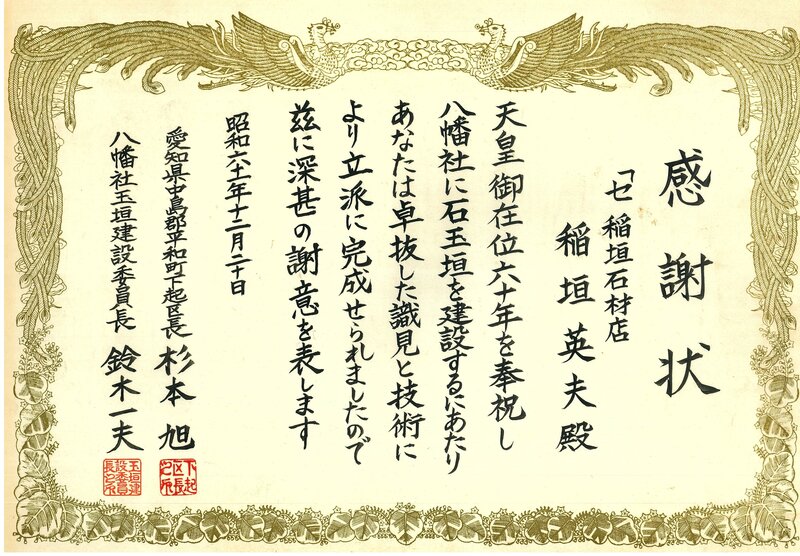 感謝状
「セ 稲垣石材店
稲垣英夫殿
天皇御在位六十年を奉祝し
八幡社に石玉垣を建設するにあたり
あなたは卓抜した識見と技術に
より立派に完成せられましたので
茲に深甚の謝意を表します
昭和六十一年十二月二十日
愛知県中島郡平和町下起区長 杉本旭
下起区長之印
八幡社玉垣建設委員長 鈴木一夫
玉垣建設委員長之印